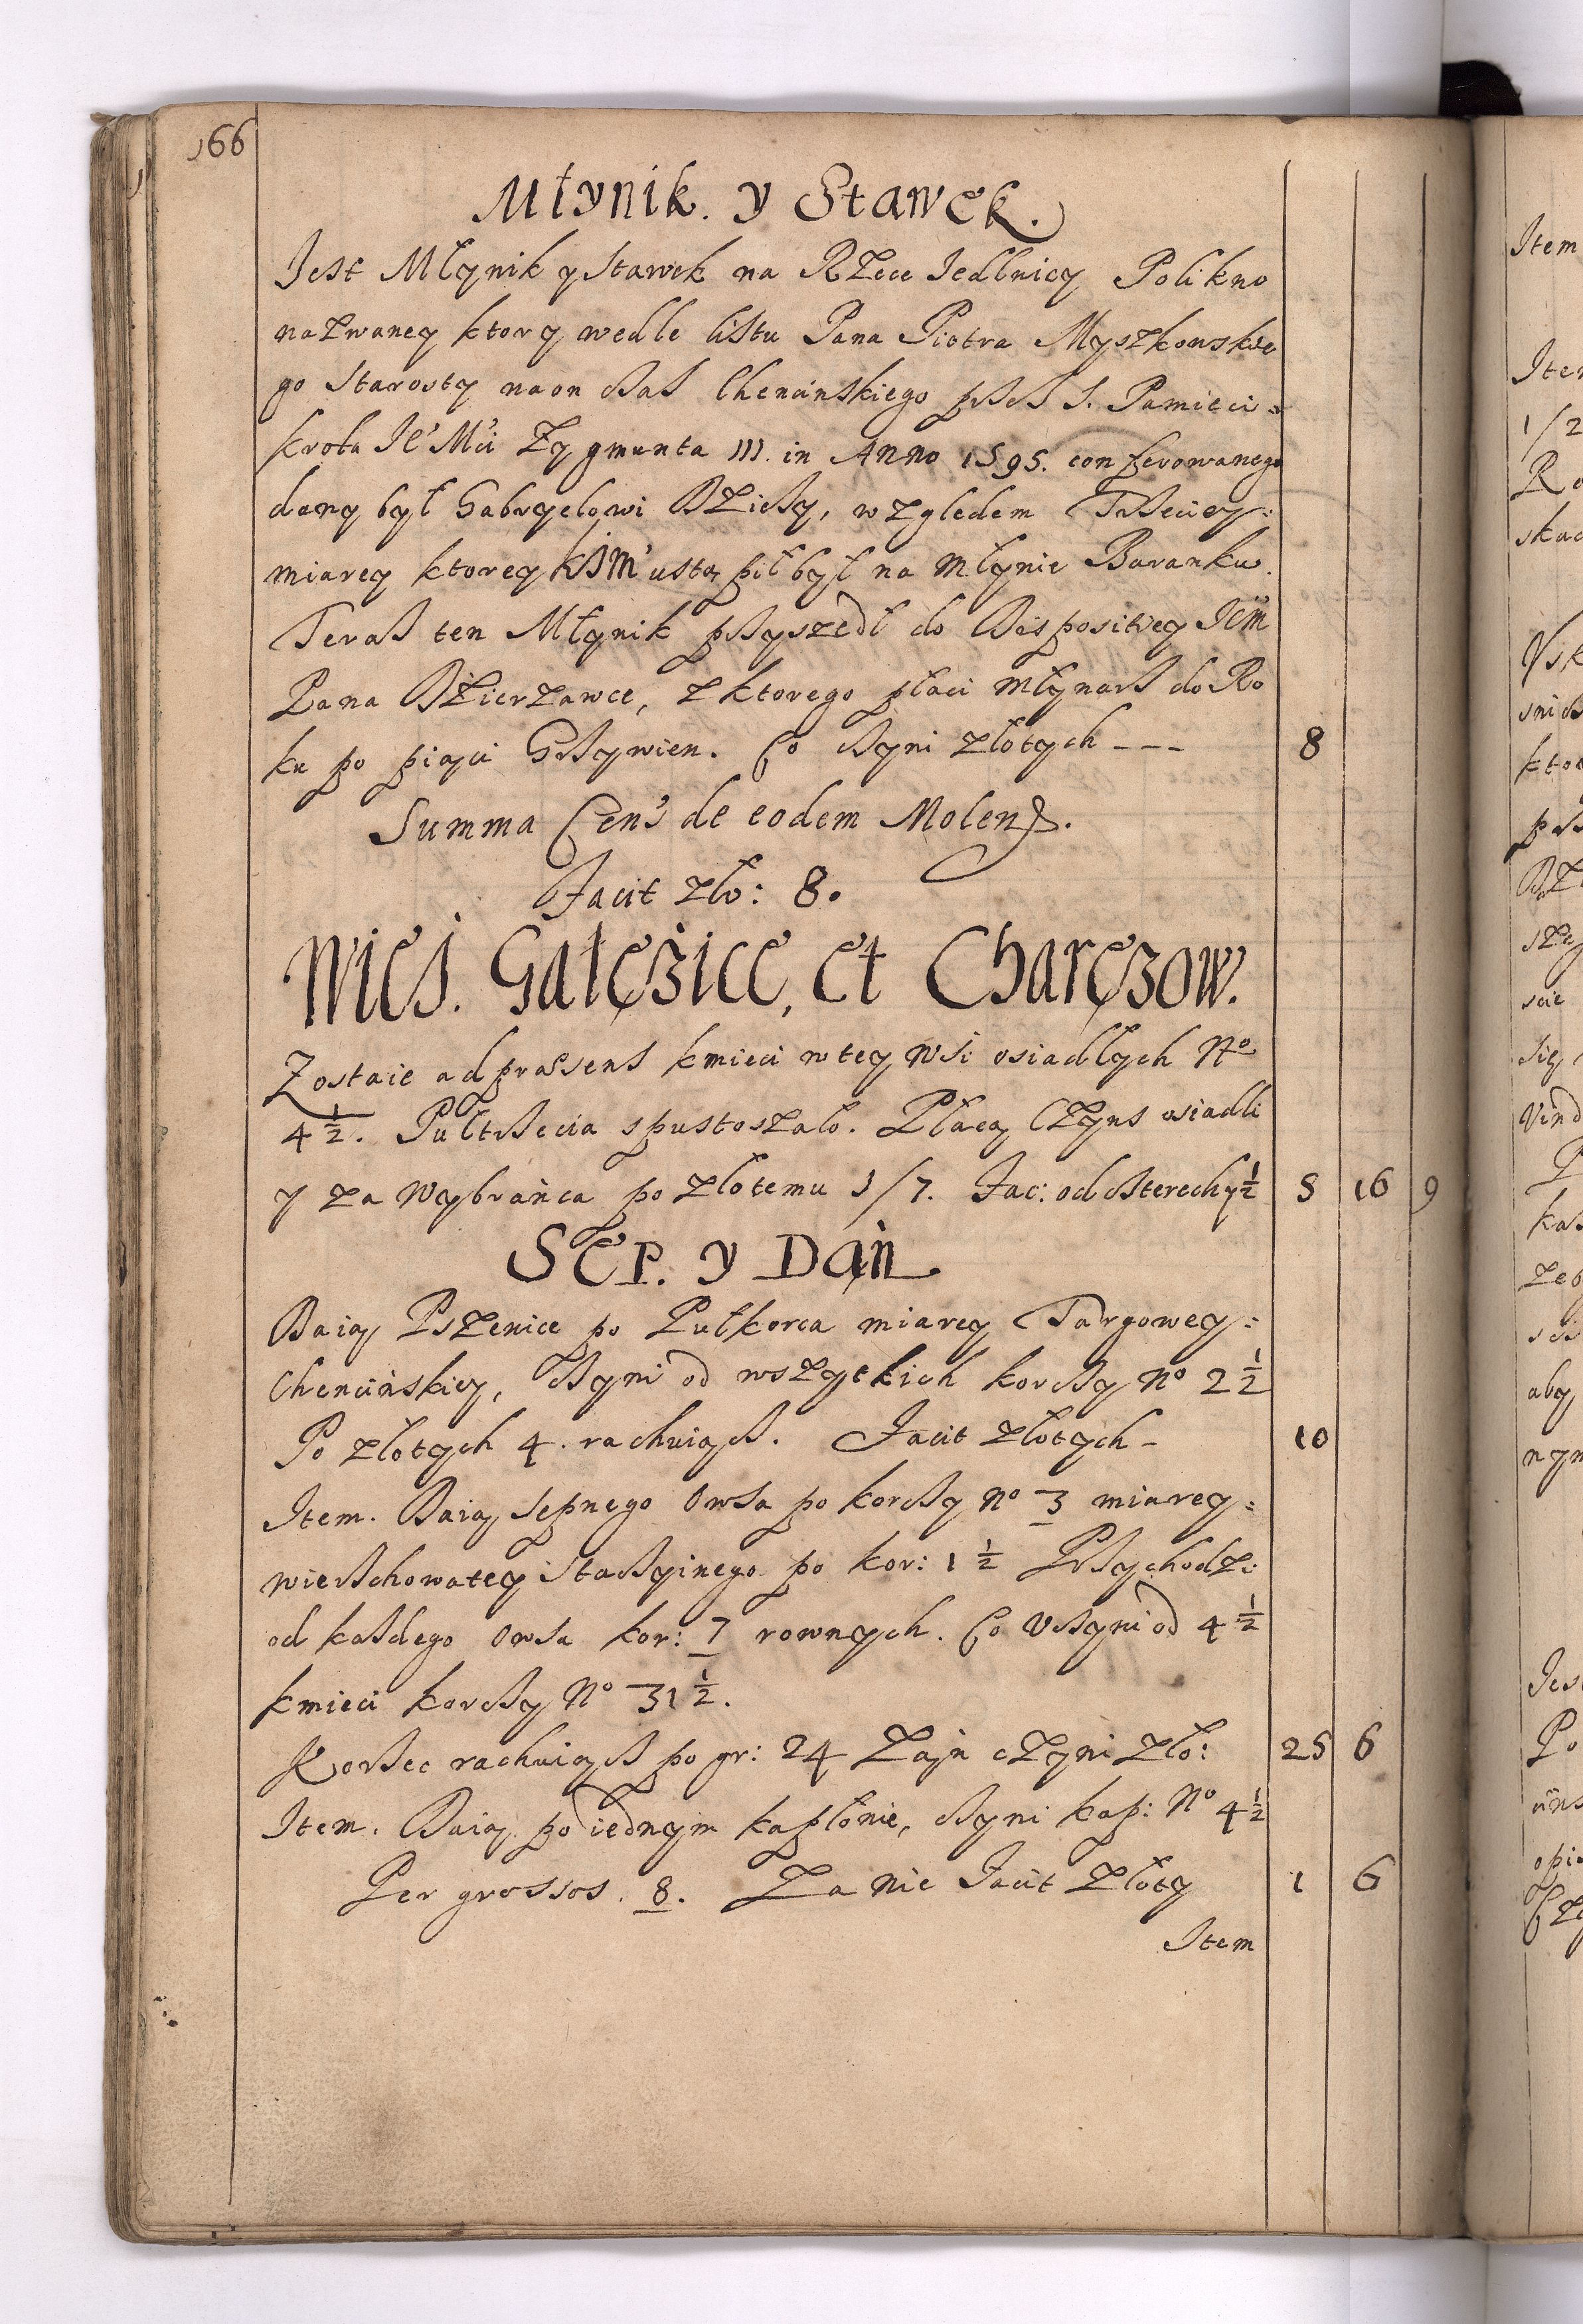 166
Młynik. y Stawek.
Jest Młynik y Stawek na Rzece Jedlnicy Polikno
nazwaney ktory wedle listu Pana Piotra Myszkowskie
go Starosty na on czas Chencinskiego przez S. Pamięci
krola Je'Mći Zygmunta III. in Anno 1595. conferowanego
dany był Gabryelowi Dzieczy, względem Trzeciey
miarey ktorey KJM' ustąpił był na Młynie Baranku.
Teraz ten Młynik przyszedł do Dispositiey Jem
Pana Dzierzawce, z ktorego płaci młynarz do Ro
ku po pięci Grzywien. Co czyni złotych --- 8
Summa Cens' de eodem Molend.
Facit zło: 8.
Wieś. Gałęzice, et Charęzow.
Zostaie ad præsens kmieci w tey wsi osiadłych No
4 1/2. Pułtrzecia spustoszało. Płacą Czyns osiadli
y za Wybrańca po złotemu 1/7. Fac: od czterech y 1/2 5 16 9
SEP. y Dań
Daią Pszenice po Pułkorca miarey Targowey
Chencińskiey, czyni od wszytkich korczy No 2 1/2
Po złotych 4. rachuiącz. Facit złotych - 10
Item. Daią sepnego Owsa po korczy No 3 miarey
wierzchowatey staczyinego po kor: 1 1/2 Przychodzi
od kazdego Owsa kor: 7 rownych. Co Uczyni od 4 1/2
kmieci korczy No 31 1/2.
Korzec rachuiącz po gr: 24 Zań czyni zło: 25 6
Item. Daią po iednym kapłonie, czyni kap: No 4 1/2
Per grossos. 8. Za nie Facit złoty 1 6
Item